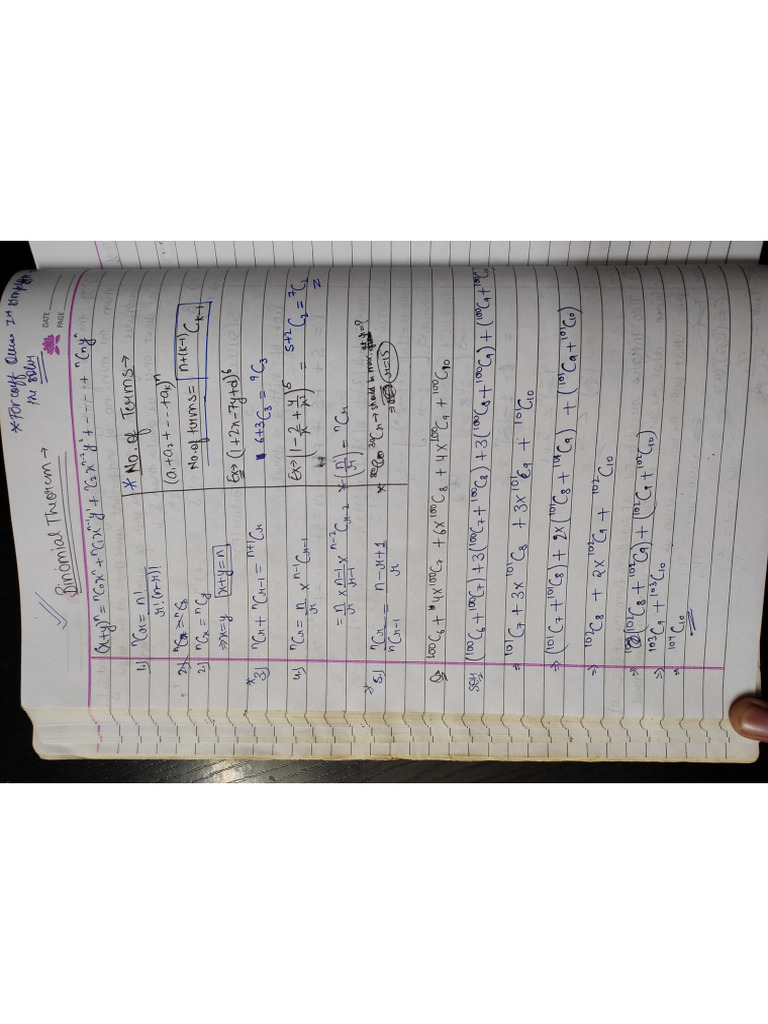 *For coeff Ques
DATE
PAGE
Binomial Theorem →
(x+y)ⁿ = ⁿC₀xⁿ + ⁿC₁xⁿ⁻¹y¹ + ⁿC₂xⁿ⁻²y² + ...... + ⁿCₙyⁿ
1.) ⁿCᵣ = n! / r!(n-r)!
2.) ⁿCₓ = ⁿCᵧ
⇒ x=y x+y=n
*3.) ⁿCᵣ + ⁿCᵣ₋₁ = ⁿ⁺¹Cᵣ
4.) ⁿCᵣ = n/r × ⁿ⁻¹Cᵣ₋₁
= n/r × n-1/r-1 × ⁿ⁻²Cᵣ₋₂
*5.) ⁿCᵣ / ⁿCᵣ₋₁ = n-r+1 / r
* No. of Terms →
(a₁+a₂+...+aₖ)ⁿ
No. of terms = ⁿ⁺⁽ᵏ⁻¹⁾Cₖ₋₁
Ex⇒ (1+2x-7y+d)⁶
⁶⁺³C₃ = ⁹C₃
Ex⇒ (1 - 2/x + 4/x²)⁵ = ⁵⁺²C₂ = ⁷C₂
* (n/r) = ⁿCᵣ
* ³⁰Cᵣ → should be max. r=?
r=15
Q. ¹⁰⁰C₆ + 4×¹⁰⁰C₇ + 6×¹⁰⁰C₈ + 4×¹⁰⁰C₉ + ¹⁰⁰C₁₀
Solⁿ (¹⁰⁰C₆ + ¹⁰⁰C₇) + 3(¹⁰⁰C₇ + ¹⁰⁰C₈) + 3(¹⁰⁰C₈ + ¹⁰⁰C₉) + (¹⁰⁰C₉ + ¹⁰⁰C₁₀
⇒ ¹⁰¹C₇ + 3×¹⁰¹C₈ + 3×¹⁰¹C₉ + ¹⁰¹C₁₀
⇒ (¹⁰¹C₇ + ¹⁰¹C₈) + 2×(¹⁰¹C₈ + ¹⁰¹C₉) + (¹⁰¹C₉ + ¹⁰¹C₁₀)
⇒ ¹⁰²C₈ + 2×¹⁰²C₉ + ¹⁰²C₁₀
⇒ (¹⁰²C₈ + ¹⁰²C₉) + (¹⁰²C₉ + ¹⁰²C₁₀)
⇒ ¹⁰³C₉ + ¹⁰³C₁₀
⇒ ¹⁰⁴C₁₀